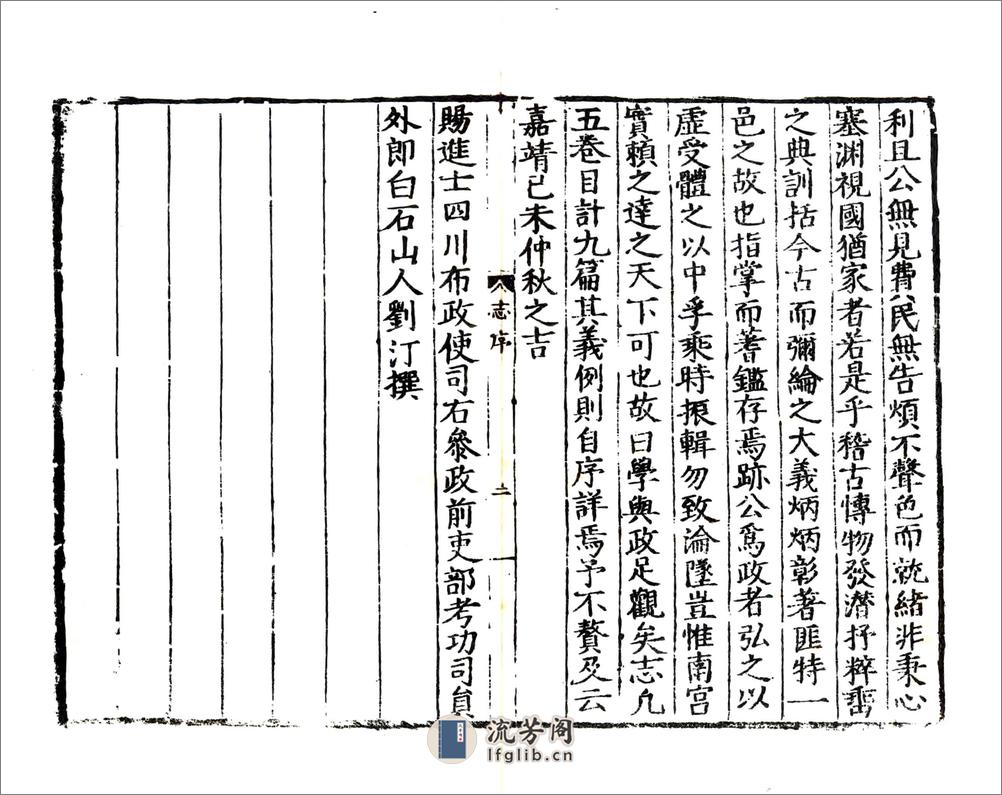 利且公無見費民無告煩不聲色而就緒非秉心
塞淵視國猶家者若是乎稽古博物發潛抒粹
之典訓括今古而彌綸之大義炳炳彰著匪特一
邑之故也指掌而蓍鑑存焉跡公爲政者弘之以
虛受體之以中孚乘時振輯勿致淪墜豈惟南宮
實賴之達之天下可也故曰學與政足觀矣志凡
五卷目計九篇其義例則自序詳焉予不贅及云
嘉靖己未仲秋之吉
志序
二
賜進士四川布政使司右叅政前吏部考功司員
外郎白石山人劉汀撰
流芳阁
lfglib.cn